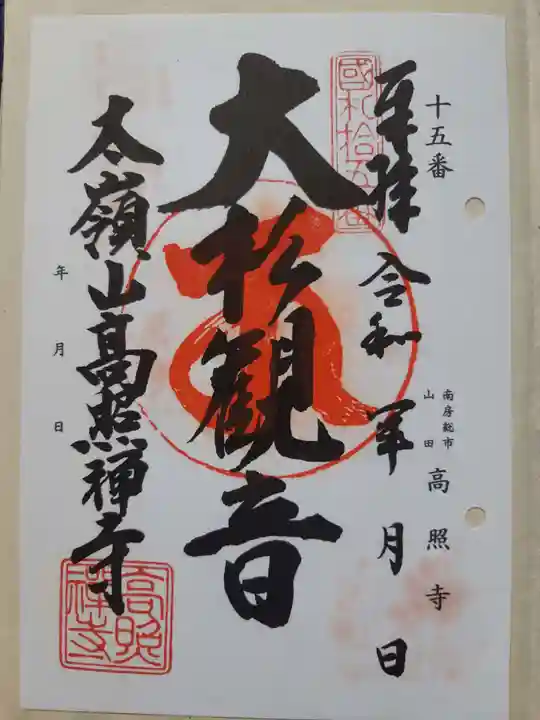 十五番
南房総市
山田
高照寺
國札拾五番
奉拝 令和 年 月 日
大松観音
太嶺山高照禅寺
年 月 日
高照
禅寺